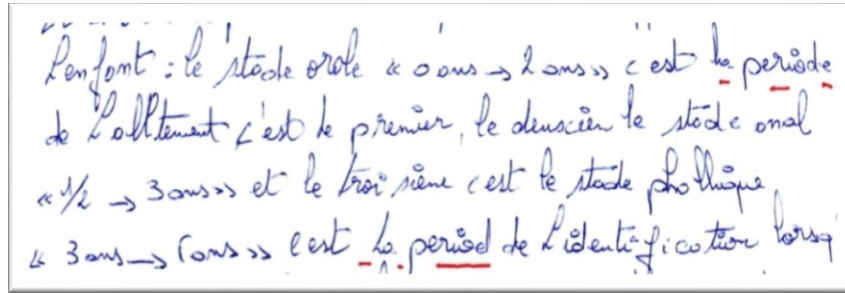 L'enfant : le stade orale « 0 ans → 2 ans » c'est la periode
de L'allitement c'est le premier, le deuxcien le stade anal
« 1/2 → 3 ans » et le troisiène c'est le stade phallique
« 3 ans → 6 ans » c'est La period de L'identification lorsq